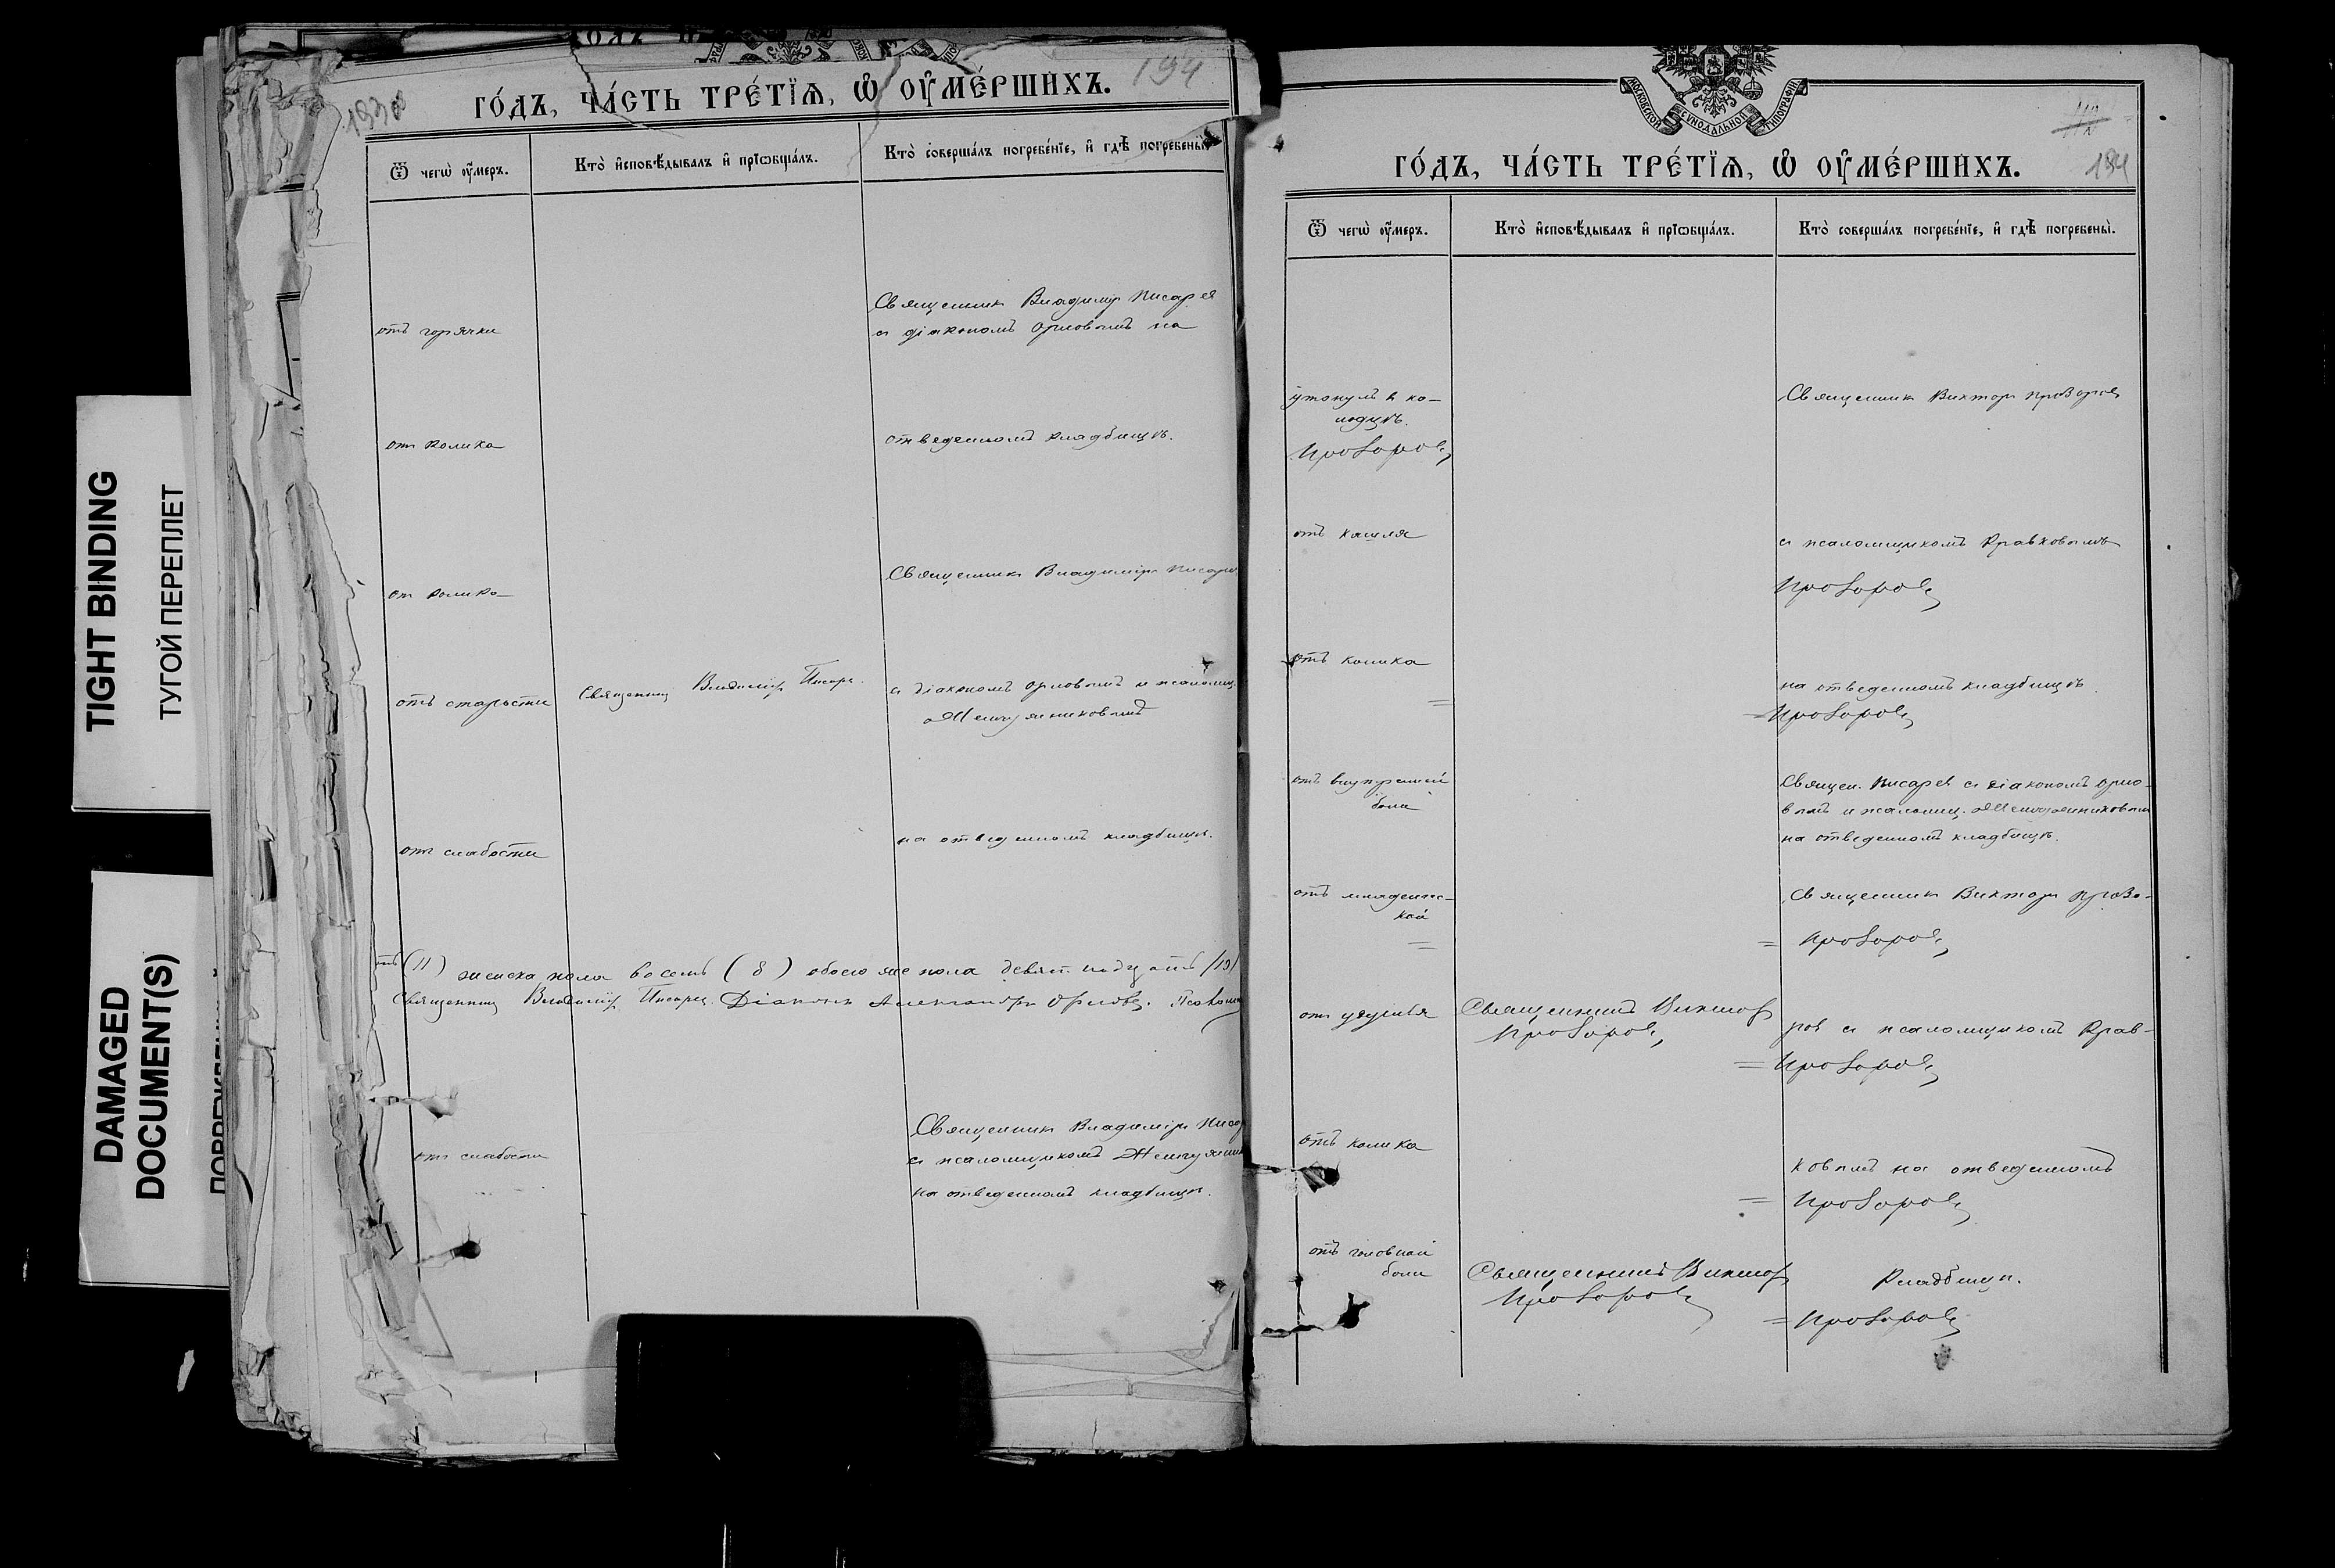 TIGHT BINDING
ТУГОЙ ПЕРЕПЛЕТ
DAMAGED
DOCUMENT(S)
193 об
194
го́дъ, ча́сть тре́тїѧ, ѡ҆ оу҆ме́ршихъ.
Ѿ чегѡ̀ оу҆́меръ.
Кто̀ и҆сповѣ́дывалъ и҆ прїѡбща́лъ.
Кто̀ соверша́лъ погребе́нїе, и҆ гдѣ̀ погребены̀.
Священникъ Владимір Писарев
отъ горячки
съ діакономъ Орловымъ на
отъ колика
отведенномъ кладбищѣ.
Священникъ Владиміръ Писарев
от колика
отъ старости
Священникъ Владимір Писарев
съ діакономъ Орловымъ и псаломщ.
Жемчужниковымъ
отъ слабости
на отведенномъ кладбищѣ.
(11) женска пола восемь (8) обоего же пола девятнадцать (19)
Священникъ Владимір Писарев. Діаконъ Александръ Орловъ.
Священникъ Владиміръ
отъ слабости
съ псаломщикомъ
на отведенномъ кладбищѣ.
МОСКОВСКОЙ СѴНОДАЛЬНОЙ ТИПОГРАФІИ
194
го́дъ, ча́сть тре́тїѧ, ѡ҆ оу҆ме́ршихъ.
Ѿ чегѡ̀ оу҆́меръ.
Кто̀ и҆сповѣ́дывалъ и҆ прїѡбща́лъ.
Кто̀ соверша́лъ погребе́нїе, и҆ гдѣ̀ погребены̀.
утонулъ в ко-
лодцѣ.
Прозоровъ
Священникъ Викторъ Прозоровъ
отъ кашля
съ псаломщикомъ Кравковымъ
Прозоровъ
отъ колика
на отведенномъ кладбищѣ
= Прозоровъ
отъ внутренней
боли
Священ. Писарев съ діакономъ Орло-
вымъ и псаломщ. Жемчужниковым
на отведенномъ кладбищѣ.
отъ младенчес-
кой
Священникъ Викторъ Прозо-
= Прозоровъ
отъ удушья
Священникъ Викторъ
Прозоровъ
ровъ съ псаломщикомъ Крав-
= Прозоровъ
отъ колика
ковымъ на отведенномъ
= Прозоровъ
отъ головной
боли
Священникъ Викторъ
Прозоровъ
кладбищѣ.
= Прозоровъ